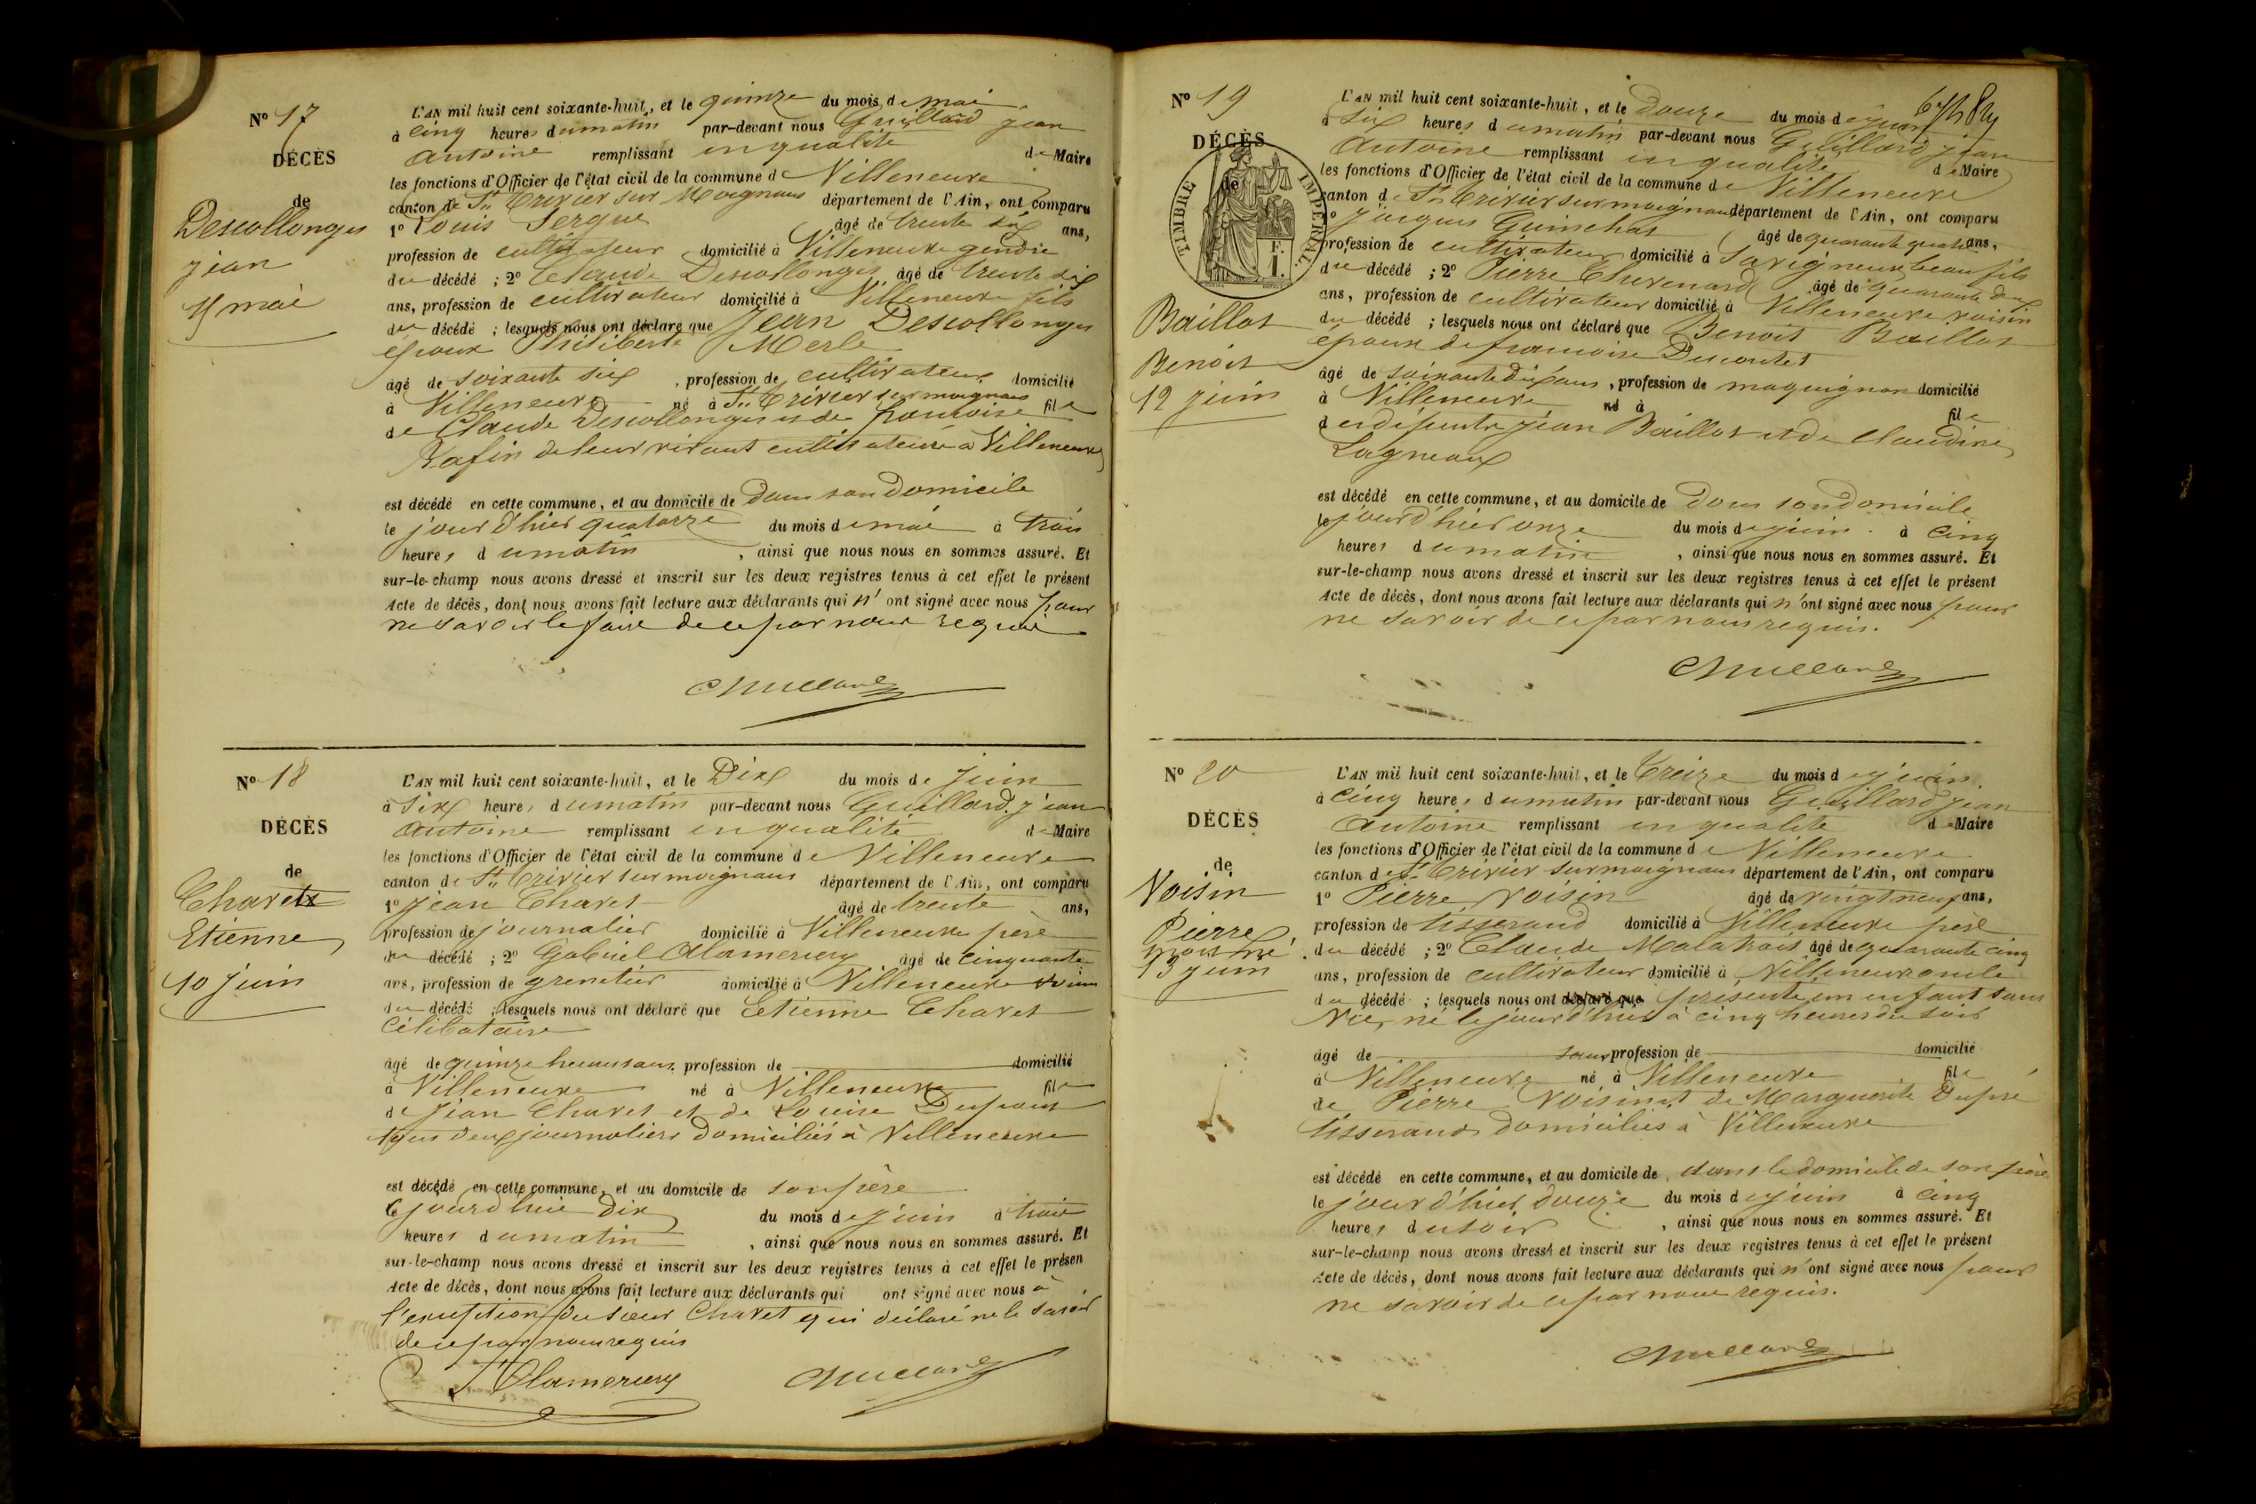 N° 17
DÉCÈS
de
Descollonges
Jean
15 mai
L'AN mil huit cent soixante-huit, et le quinze du mois de mai
à cinq heures du matin par-devant nous Guillard Jean
Antoine remplissant en qualité de Maire
les fonctions d'Officier de l'état civil de la commune de Villeneuve
canton de St Trivier sur Moignans département de l'Ain, ont comparu
1° Louis Sergue âgé de trente six ans,
profession de cultivateur domicilié à Villeneuve gendre
du décédé ; 2° Claude Descollonges âgé de trente six
ans, profession de cultivateur domicilié à Villeneuve fils
du décédé ; lesquels nous ont déclaré que Jean Descollonges
époux Philiberte Merle
âgé de soixante six , profession de cultivateur domicilié
à Villeneuve né à St Trivier sur moignans fils
de Claude Descollonges et de françoise
Rafin de leur vivant cultivateurs à Villeneuve
est décédé en cette commune, et au domicile de dans son domicile
le jour d'hier quatorze du mois de mai à trois
heures du matin , ainsi que nous nous en sommes assuré. Et
sur-le-champ nous avons dressé et inscrit sur les deux registres tenus à cet effet le présent
Acte de décès, dont nous avons fait lecture aux déclarants qui n'ont signé avec nous pour
ne savoir le faire de ce par nous requis
Guillard
N° 18
DÉCÈS
de
Charet
Etienne
10 juin
L'AN mil huit cent soixante-huit, et le Dix du mois de Juin
à six heures du matin par-devant nous Guillard Jean
Antoine remplissant en qualité de Maire
les fonctions d'Officier de l'état civil de la commune de Villeneuve
canton de St Trivier sur moignans département de l'Ain, ont comparu
1° Jean Charet âgé de trente ans,
profession de journalier domicilié à Villeneuve père
du décédé ; 2° Gabriel Alamercery âgé de cinquante
ans, profession de grenetier domicilié à Villeneuve voisin
du décédé ; lesquels nous ont déclaré que Etienne Charet
Célibataire
âgé de quinze heures sans profession de domicilié
à Villeneuve né à Villeneuve fils
de Jean Charet et de Louise Dupont
tous deux journaliers domiciliés à Villeneuve
est décédé en cette commune, et au domicile de son père
le jourd'hui dix du mois de juin à trois
heures du matin , ainsi que nous nous en sommes assuré. Et
sur-le-champ nous avons dressé et inscrit sur les deux registres tenus à cet effet le présen
Acte de décès, dont nous avons fait lecture aux déclarants qui ont signé avec nous à
l'exception du sieur Charet qui a déclaré ne le savoir
de ce par nous requis
Alamercery Guillard
N° 19
DÉCÈS
de
TIMBRE IMPÉRIAL.
1 F.
Baillot
Benoît
12 juin
L'AN mil huit cent soixante-huit, et le Douze du mois de juin
à six heures du matin par-devant nous Guillard Jean
Antoine remplissant en qualité de Maire
les fonctions d'Officier de l'état civil de la commune de Villeneuve
canton de St Trivier sur moignans département de l'Ain, ont comparu
1° Jacques Guinchat âgé de quarante quatre ans,
profession de cultivateur domicilié à Savigneux beau fils
du décédé ; 2° Pierre Chevenard âgé de quarante deux
ans, profession de cultivateur domicilié à Villeneuve voisin
du décédé ; lesquels nous ont déclaré que Benoit Baillot
époux de françoise Descoutet
âgé de soixante dix ans, profession de maquignon domicilié
à Villeneuve né à fils
des défunts Jean Baillot et de Claudine
Lagneaux
est décédé en cette commune, et au domicile de dans son domicile
le jour d'hier onze du mois de juin à cinq
heures du matin , ainsi que nous nous en sommes assuré. Et
sur-le-champ nous avons dressé et inscrit sur les deux registres tenus à cet effet le présent
Acte de décès, dont nous avons fait lecture aux déclarants qui n'ont signé avec nous pour
ne savoir de ce par nous requis.
Guillard
N° 20
DÉCÈS
de
Voisin
Pierre
mort né
13 juin
L'AN mil huit cent soixante-huit, et le Treize du mois de juin
à cinq heures du matin par-devant nous Guillard Jean
Antoine remplissant en qualité de Maire
les fonctions d'Officier de l'état civil de la commune de Villeneuve
canton de St Trivier sur moignans département de l'Ain, ont comparu
1° Pierre Voisin âgé de vingt neuf ans,
profession de tisserand domicilié à Villeneuve père
du décédé ; 2° Claude Malatrait âgé de quarante cinq
ans, profession de cultivateur domicilié à Villeneuve oncle
du décédé ; lesquels nous ont déclaré que présenté un enfant sans
vie, né le jour d'hier à cinq heures du soir
âgé de sans profession de domicilié
à Villeneuve né à Villeneuve fils
de Pierre Voisin et de Marguerite Dupré
tisserands domiciliés à Villeneuve
est décédé en cette commune, et au domicile de dans le domicile de son père
le jour d'hier douze du mois de juin à cinq
heures du soir , ainsi que nous nous en sommes assuré. Et
sur-le-champ nous avons dressé et inscrit sur les deux registres tenus à cet effet le présent
Acte de décès, dont nous avons fait lecture aux déclarants qui n'ont signé avec nous pour
ne savoir de ce par nous requis.
Guillard